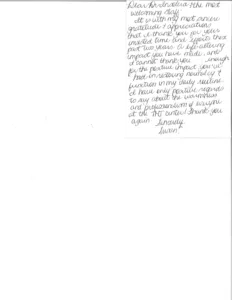 Dear Dr. & the most
welcoming staff
It is with my most sincere
gratitude & appreciation
that I thank you for your
invested time and efforts these
past two years. A life-altering
impact you have made, and
I cannot thank you enough
for the positive impact you've
had in restoring normalcy &
function in my daily routine.
I have only positive regards
to say about the warmness
and professionalism of everyone
at the center! Thank you
again. Sincerely,
Susan